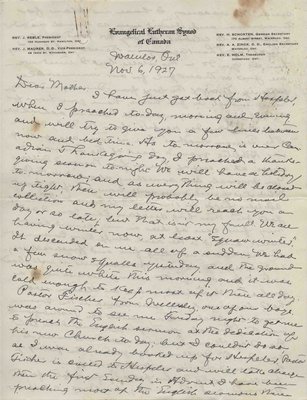 Evangelical Lutheran Synod
of Canada
REV. J. REBLE, PRESIDENT
REV. J. MAURER, D.D., VICE-PRESIDENT
Waterloo, Ont
Nov 6, 1927
Dear Mother,
I have just got back from Hespeler
where I preached to-day, morning and evening
and will try to give you a few lines between
now and bed time. As to-morrow is our Can-
adian Thanksgiving Day I preached a thanks-
giving sermon to-night. We will have a holiday
to-morrow, and as everything will be closed
up tight, there will probably be no mail
collection and my letter will reach you a
day or so late, but that is not my fault. We are
having winter now, at least "squaw winter".
It descended on us all of a sudden. We had
a few snow squalls yesterday and the ground
was quite white this morning and it was
cold enough to keep most of it there all day.
Pastor Fischer from Wellesley, one of our boys,
was around to see me Tuesday night to get me
to preach the English sermon at the dedication of
his new Church to-day, but I couldn't do so
as I was already booked up for Hespeler. Pastor
is called to Hespeler and will take charge
there the first Sunday in Advent. I have been
preaching most of the English sermons there